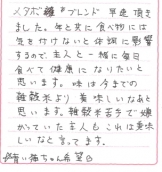 メタボ雑穀ブレンド早速頂き
ました。年と共に食べ物には
気を付けないと体調に影響
するので、主人と一緒に毎日
食べて健康になりたいと
思います。味は今までの
雑穀米より美味しいなあと
思います。雑穀米苦手で嫌
がっていた主人もこれは美味
しいなと言ってます。
青い猫ちゃん希望